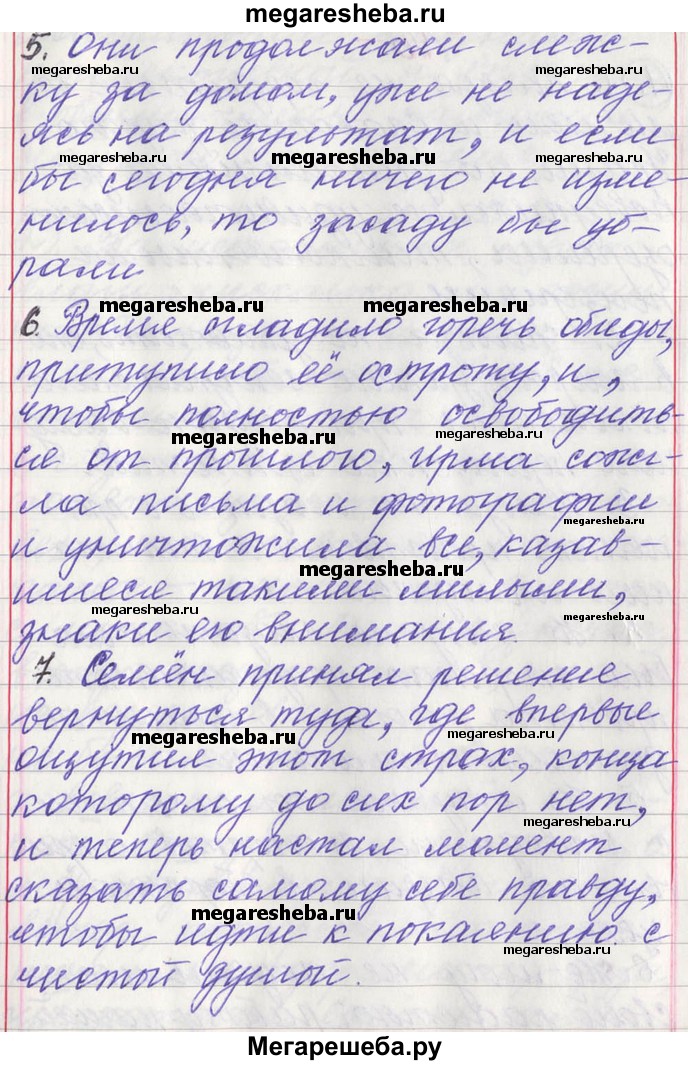 megaresheba.ru
5. Они продолжали слеж-
megaresheba.ru megaresheba.ru
ку за домом, уже не наде-
ясь на результат, и если
megaresheba.ru megaresheba.ru
бы сегодня ничего не изме-
нилось, то засаду бы уб-
рали
megaresheba.ru megaresheba.ru
6. Время сгладило горечь обиды,
притупило её остроту, и,
чтобы полностью освободить-
megaresheba.ru megaresheba.ru
ся от прошлого, Ирма сожг-
ла письма и фотографии
megaresheba.ru
и уничтожила все, казав-
megaresheba.ru
шиеся такими милыми,
megaresheba.ru megaresheba.ru
знаки его внимания.
7. Семён принял решение
вернуться туда, где впервые
megaresheba.ru megaresheba.ru
ощутил этот страх, конца
которому до сих пор нет,
megaresheba.ru
и теперь настал момент
сказать самому себе правду,
megaresheba.ru
чтобы идти к покаянию с
megaresheba.ru
чистой душой.
Мегарешеба.ру